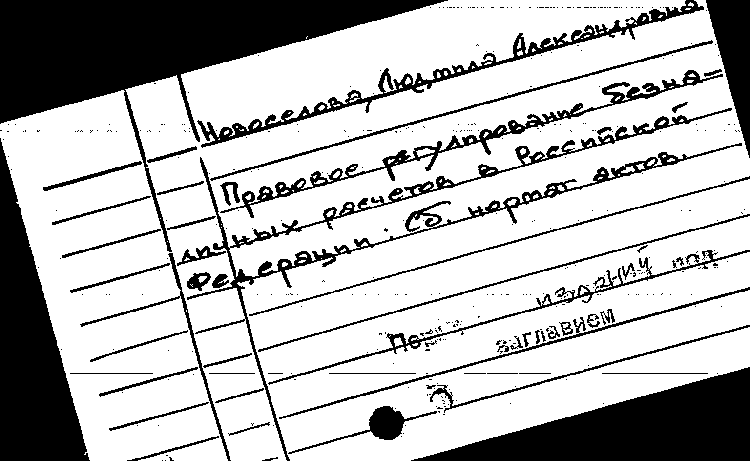 Новоселова, Людмила Александровна
Правовое регулирование безна-
личных расчетов в Российской
Федерации: Сб. нормат. актов.
изданий под
заглавием